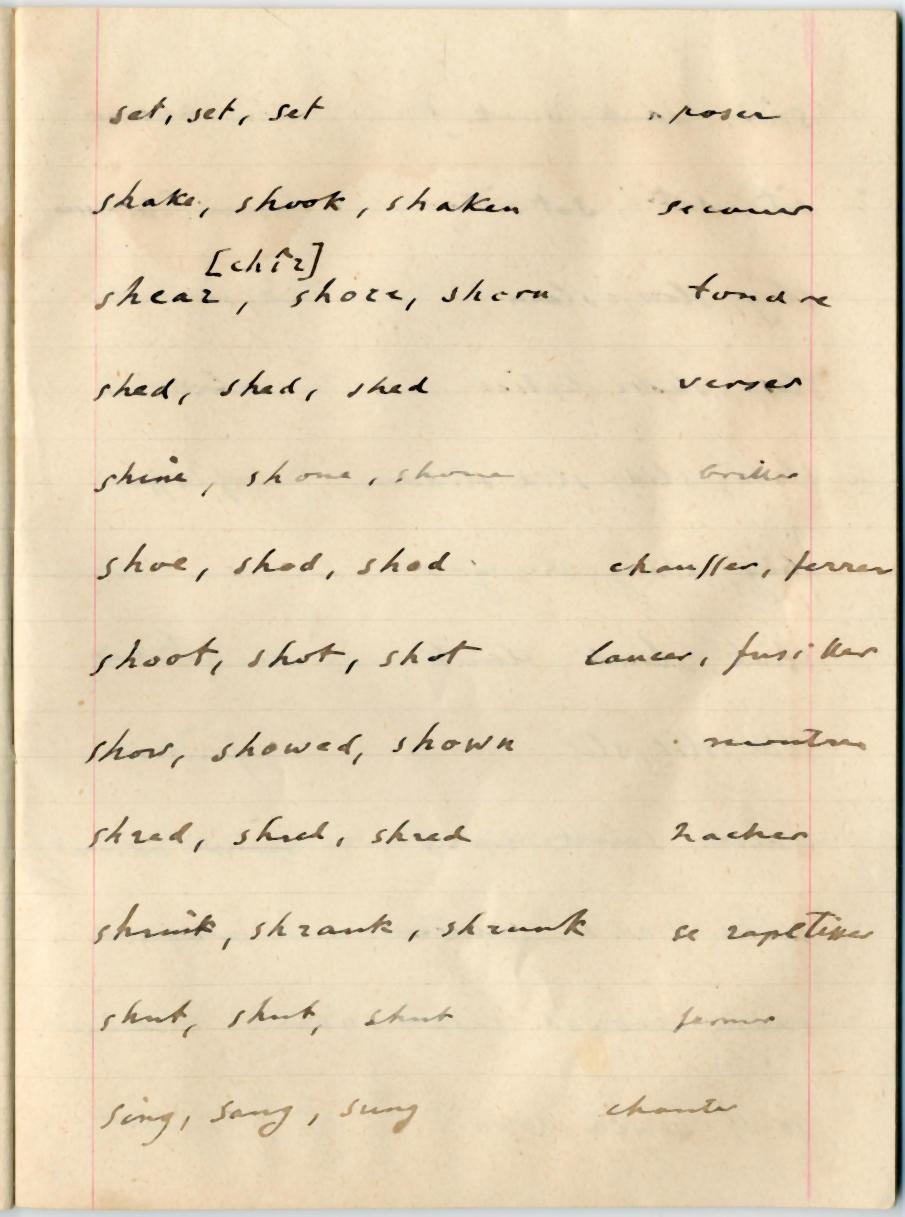 set, set, set poser
shake, shook, shaken secouer
[chîr]
shear, shore, shorn tondre
shed, shed, shed verser
shine, shone, shone briller
shoe, shod, shod chausser, ferrer
shoot, shot, shot lancer, fusiller
show, showed, shown montrer
shred, shred, shred hacher
shrink, shrank, shrunk se rapetisser
shut, shut, shut fermer
sing, sang, sung chanter